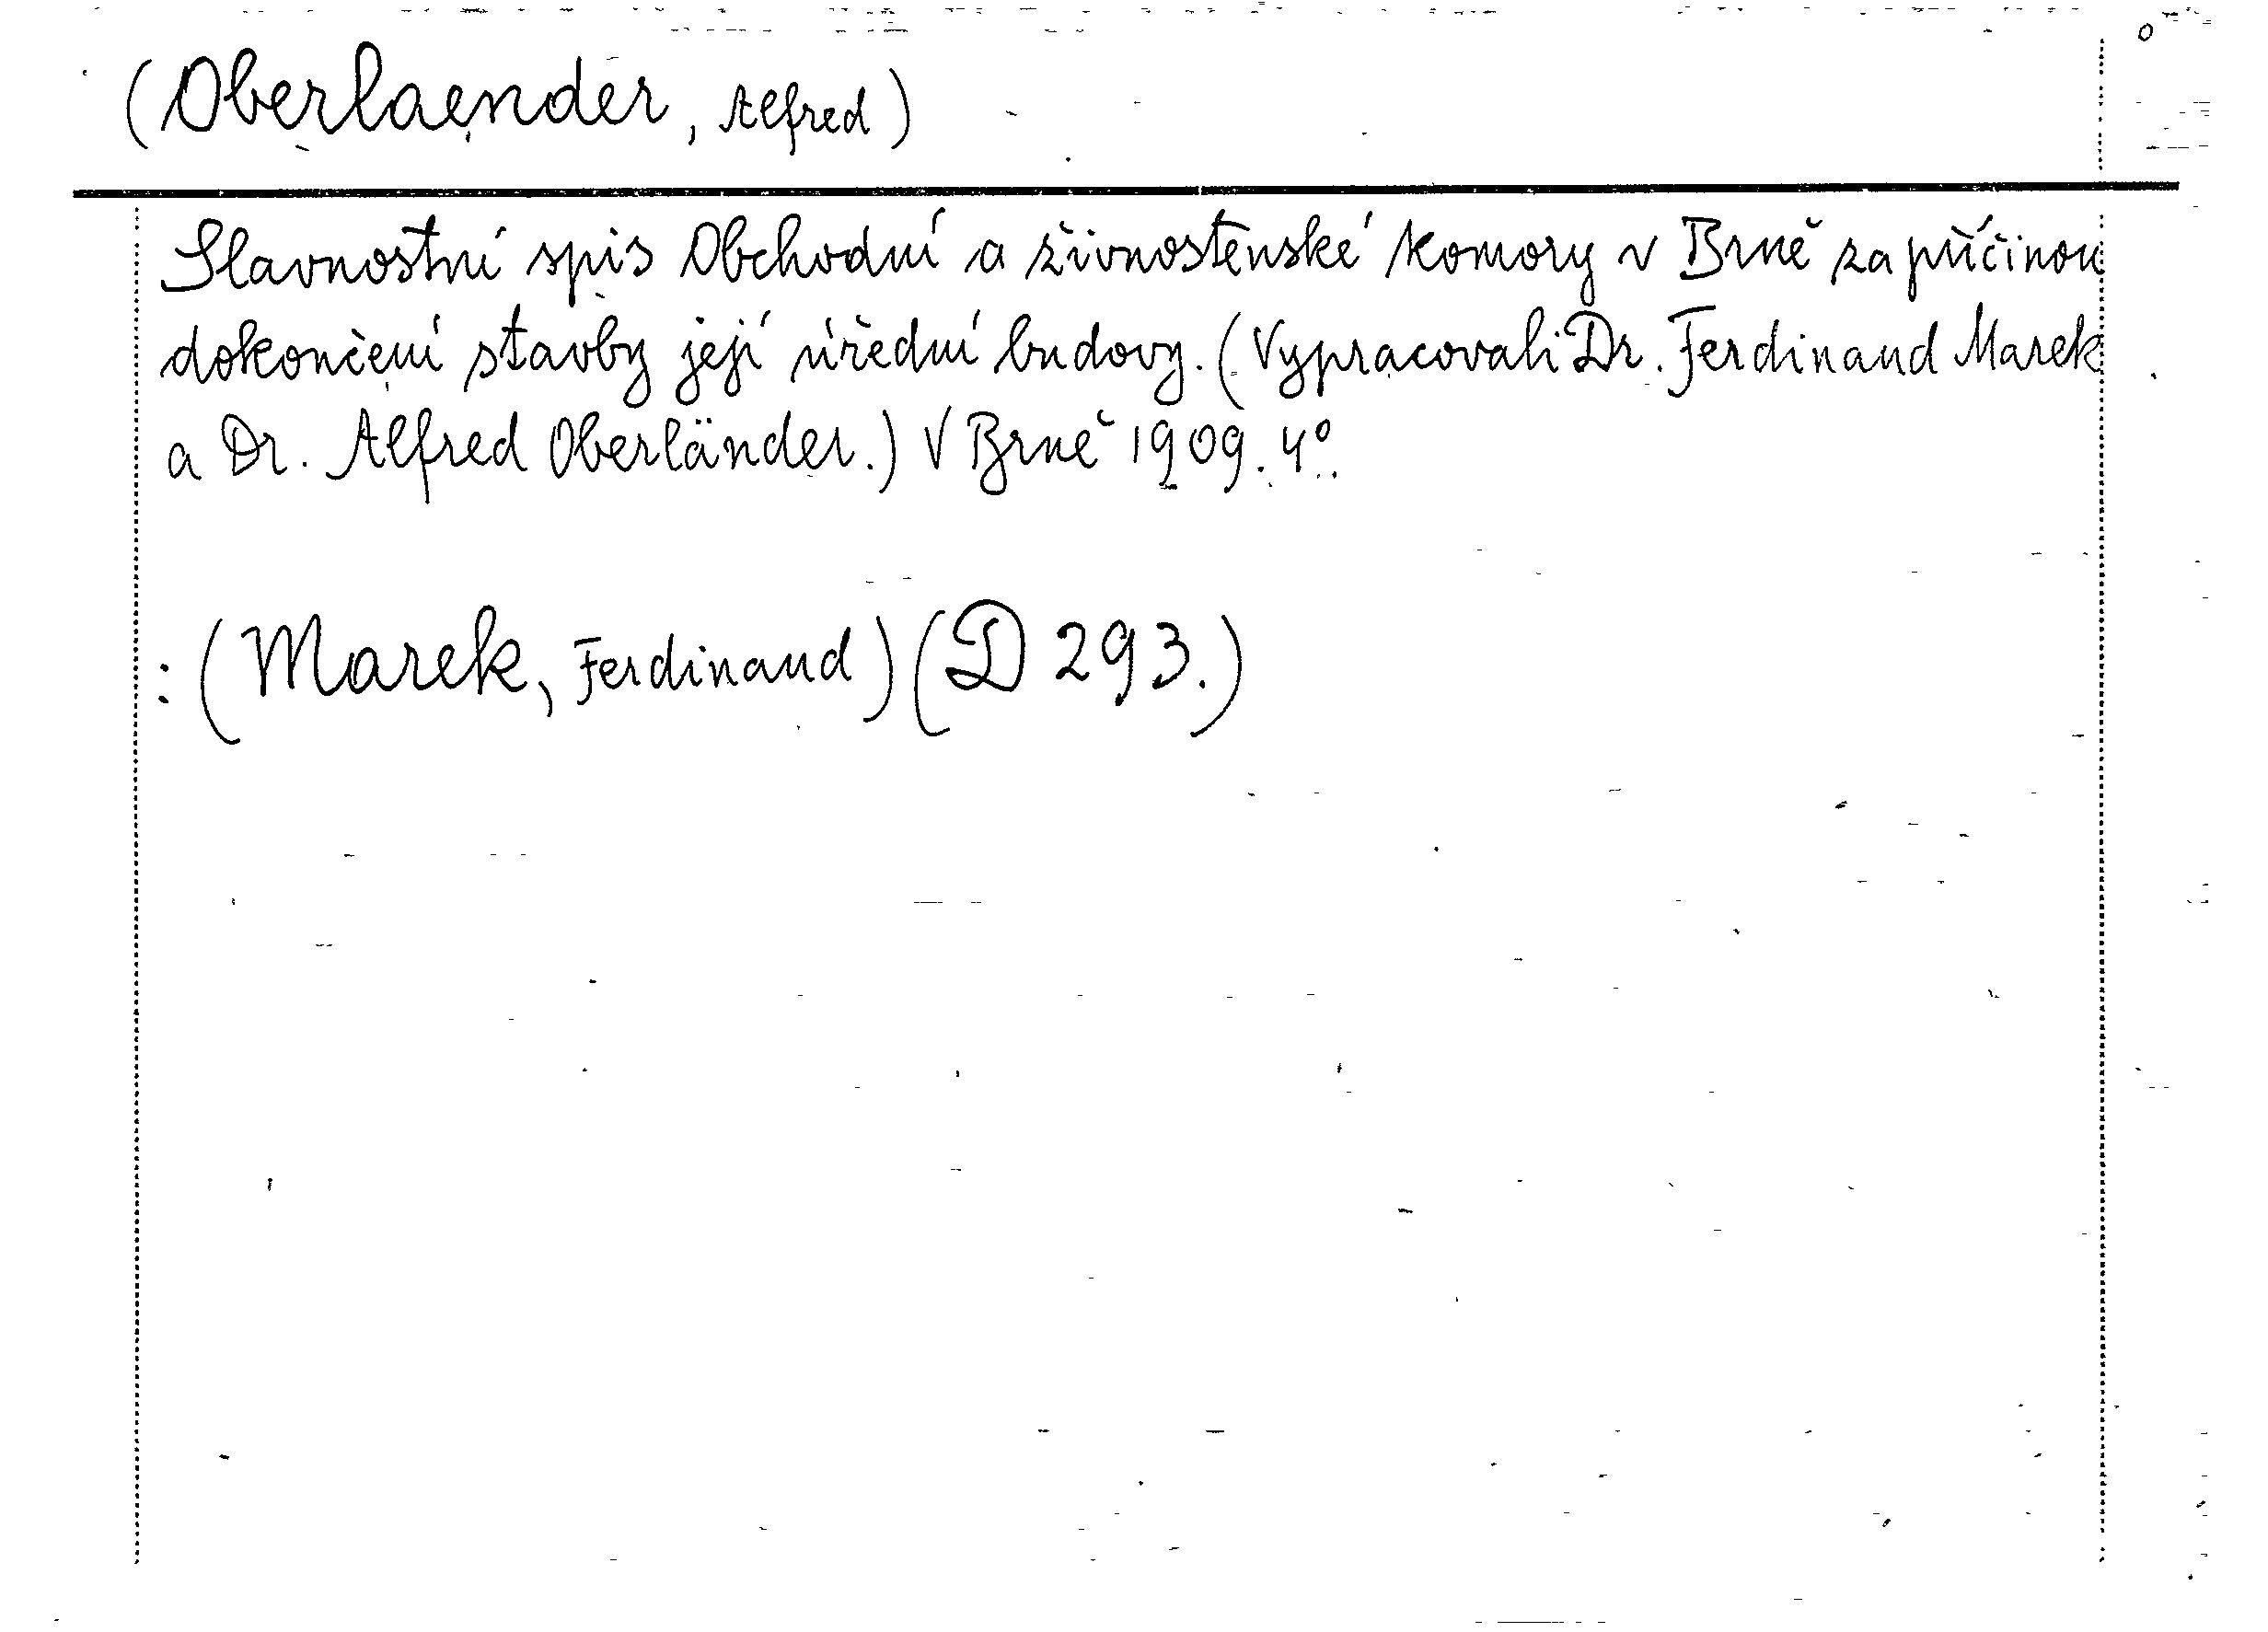 (Oberlaender, Alfred)
Slavnostní spis Obchodní a živnostenské komory v Brně za příčinou
dokončení stavby její úřední budovy. (Vypracovali Dr. Ferdinand Marek
a Dr. Alfred Oberländer.) V Brně 1909. 4°.
: (Marek, Ferdinand) (D 293.)